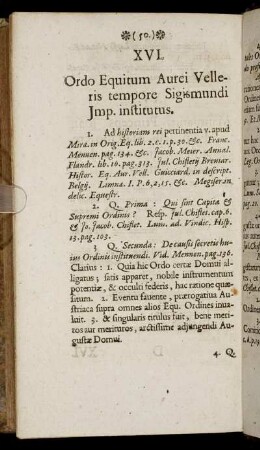 *( 50. )*
XVI.
Ordo Equitum Aurei Velle-
ris tempore Sigismundi
Jmp. institutus.
1. Ad historiam rei pertinentia v. apud
Mira. in Orig. Eq. lib. 2. c. 1. p. 30. &c. Franc.
Mennen. pag. 134. &c. Jacob. Meier. Annal.
Flandr. lib. 16. pag. 313. Jul. Chifletij Breviar.
Histor. Eq. Aur. Vell. Guicciard. in descript.
Belgij. Limna. I. P. 6, 2, 15. &c. Megiser in
delic. Equestr.
2. Q. Prima: Qui sint Capita &
Supremi Ordinis? Resp. Jul. Chiflet. cap. 6.
& Jo. Jacob. Chiflet. Lum. ad. Vindic. Hisp.
13. pag. 103.
3. Q. Secunda: De causis secretis hu-
ius Ordinis instituendi. Vid. Mennen. pag. 136.
Clarius: 1. Quia hic Ordo certæ Domui al-
ligatus; satis apparet, nobile instrumentum
potentiæ, & occulti federis, hac ratione quæ-
situm. 2. Eventu favente, prærogativa Au-
striaca supra omnes alios Equ. Ordines inva-
luit. 3. & singularis titulus fuit, bene meri-
tos aut merituros, arctissime adjungendi Au-
gustæ Domui.
4. Q.